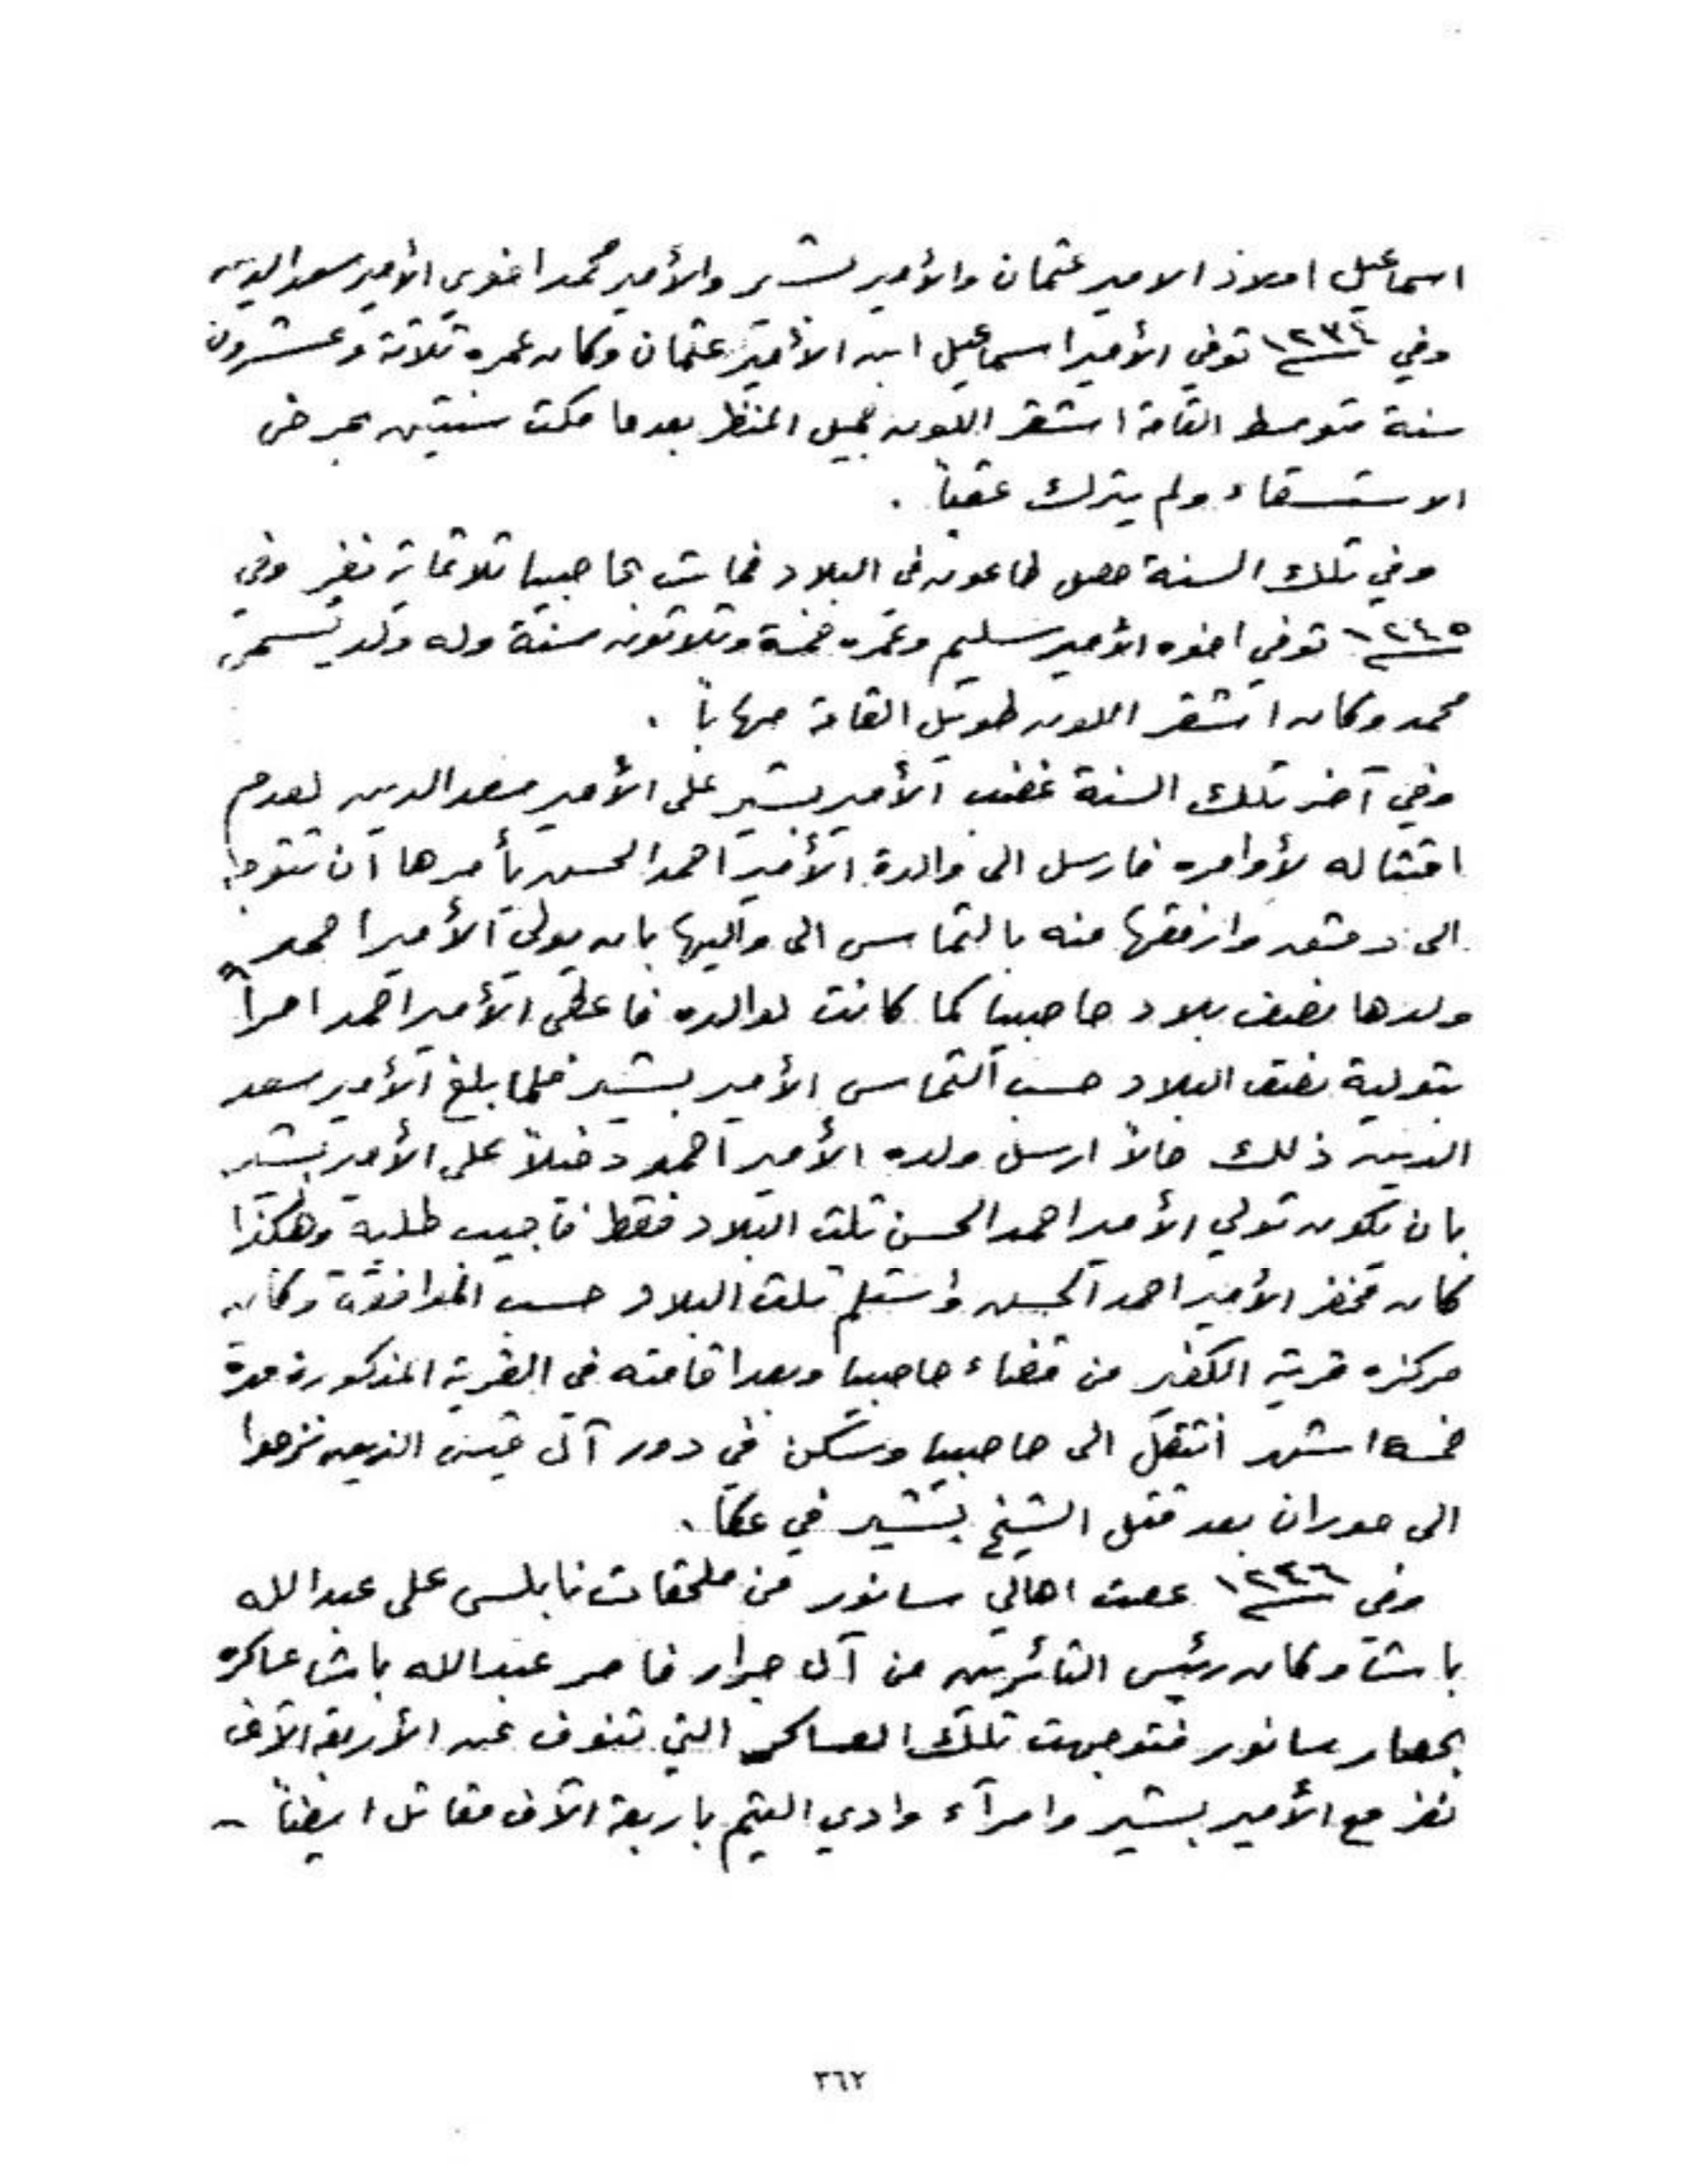 اسماعيل اولاد الامير عثمان والأمير بشير والأمير محمد اخوي الأمير سعد الدين
وفي ١٢٣٤ سنة توفي الأمير اسماعيل ابن الأمير عثمان وكان عمره ثلاثة وعشرون
سنة متوسط القامة اشقر اللون جميل المنظر بعدما مكث سنتين بمرض
الاستسقاء ولم يترك عقباً .
وفي تلك السنة حصل طاعون في البلاد فمات بحاصبيا ثلاثماية نفر وفي
١٢٤٥ سنة توفي اخوه الأمير سليم وعمره خمسة وثلاثون سنة وله ولد يسمى
محمد وكان اشقر اللون طويل القامة مهاباً .
وفي آخر تلك السنة غضب الأمير بشير على الأمير سعد الدين لعدم
امتثاله لأوامره فارسل الى والدة الأمير احمد الحسن يأمرها ان تتوجه
الى دمشق وارفقها منه بالتماس الى واليها بان يولي الأمير احمد
ولدها نصف بلاد حاصبيا كما كانت لوالده فاعطى الأمير احمد امراً
بتولية نصف البلاد حسب التماس الأمير بشير فلما بلغ الأمير سعد
الدين ذلك حالاً ارسل ولده الأمير احمد دخيلاً على الأمير بشير
بان يكون تولي الأمير احمد الحسن ثلث البلاد فقط فاجيب طلبه وهكذا
كان فحضر الأمير احمد الحسن واستلم ثلث البلاد حسب الموافقة وكان
مركزه قرية الكفير من قضاء حاصبيا وبعد اقامته في القرية المذكورة مدة
خمسة اشهر انتقل الى حاصبيا وسكن في دور آل قيس الذين نزحوا
الى حوران بعد قتل الشيخ بشير في عكا .
وفي ١٢٤٦ سنة عصت اهالي سانور من ملحقات نابلس على عبدالله
باشا وكان رئيس الثائرين من آل جرار فامر عبدالله باشا عساكره
بحصار سانور فتوجهت تلك العساكر التي تنوف عن الأربعة الآف
نفر مع الأمير بشير وامرآء وادي التيم باربعة الآف مقاتل ايضاً -
٣٦٢